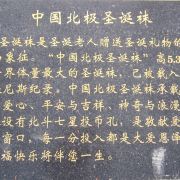 中国北极圣诞袜
圣诞袜是圣诞老人赠送圣诞礼物的
象征。“中国北极圣诞袜”高5.3
界体量最大的圣诞袜，已被载入
尼斯纪录。中国北极圣诞袜承载
爱心、平安与吉祥、神奇与浪漫
设有北斗七星投币孔，是敬献爱
窗口，每一分投入都是大爱恩泽
福快乐将伴您一生。